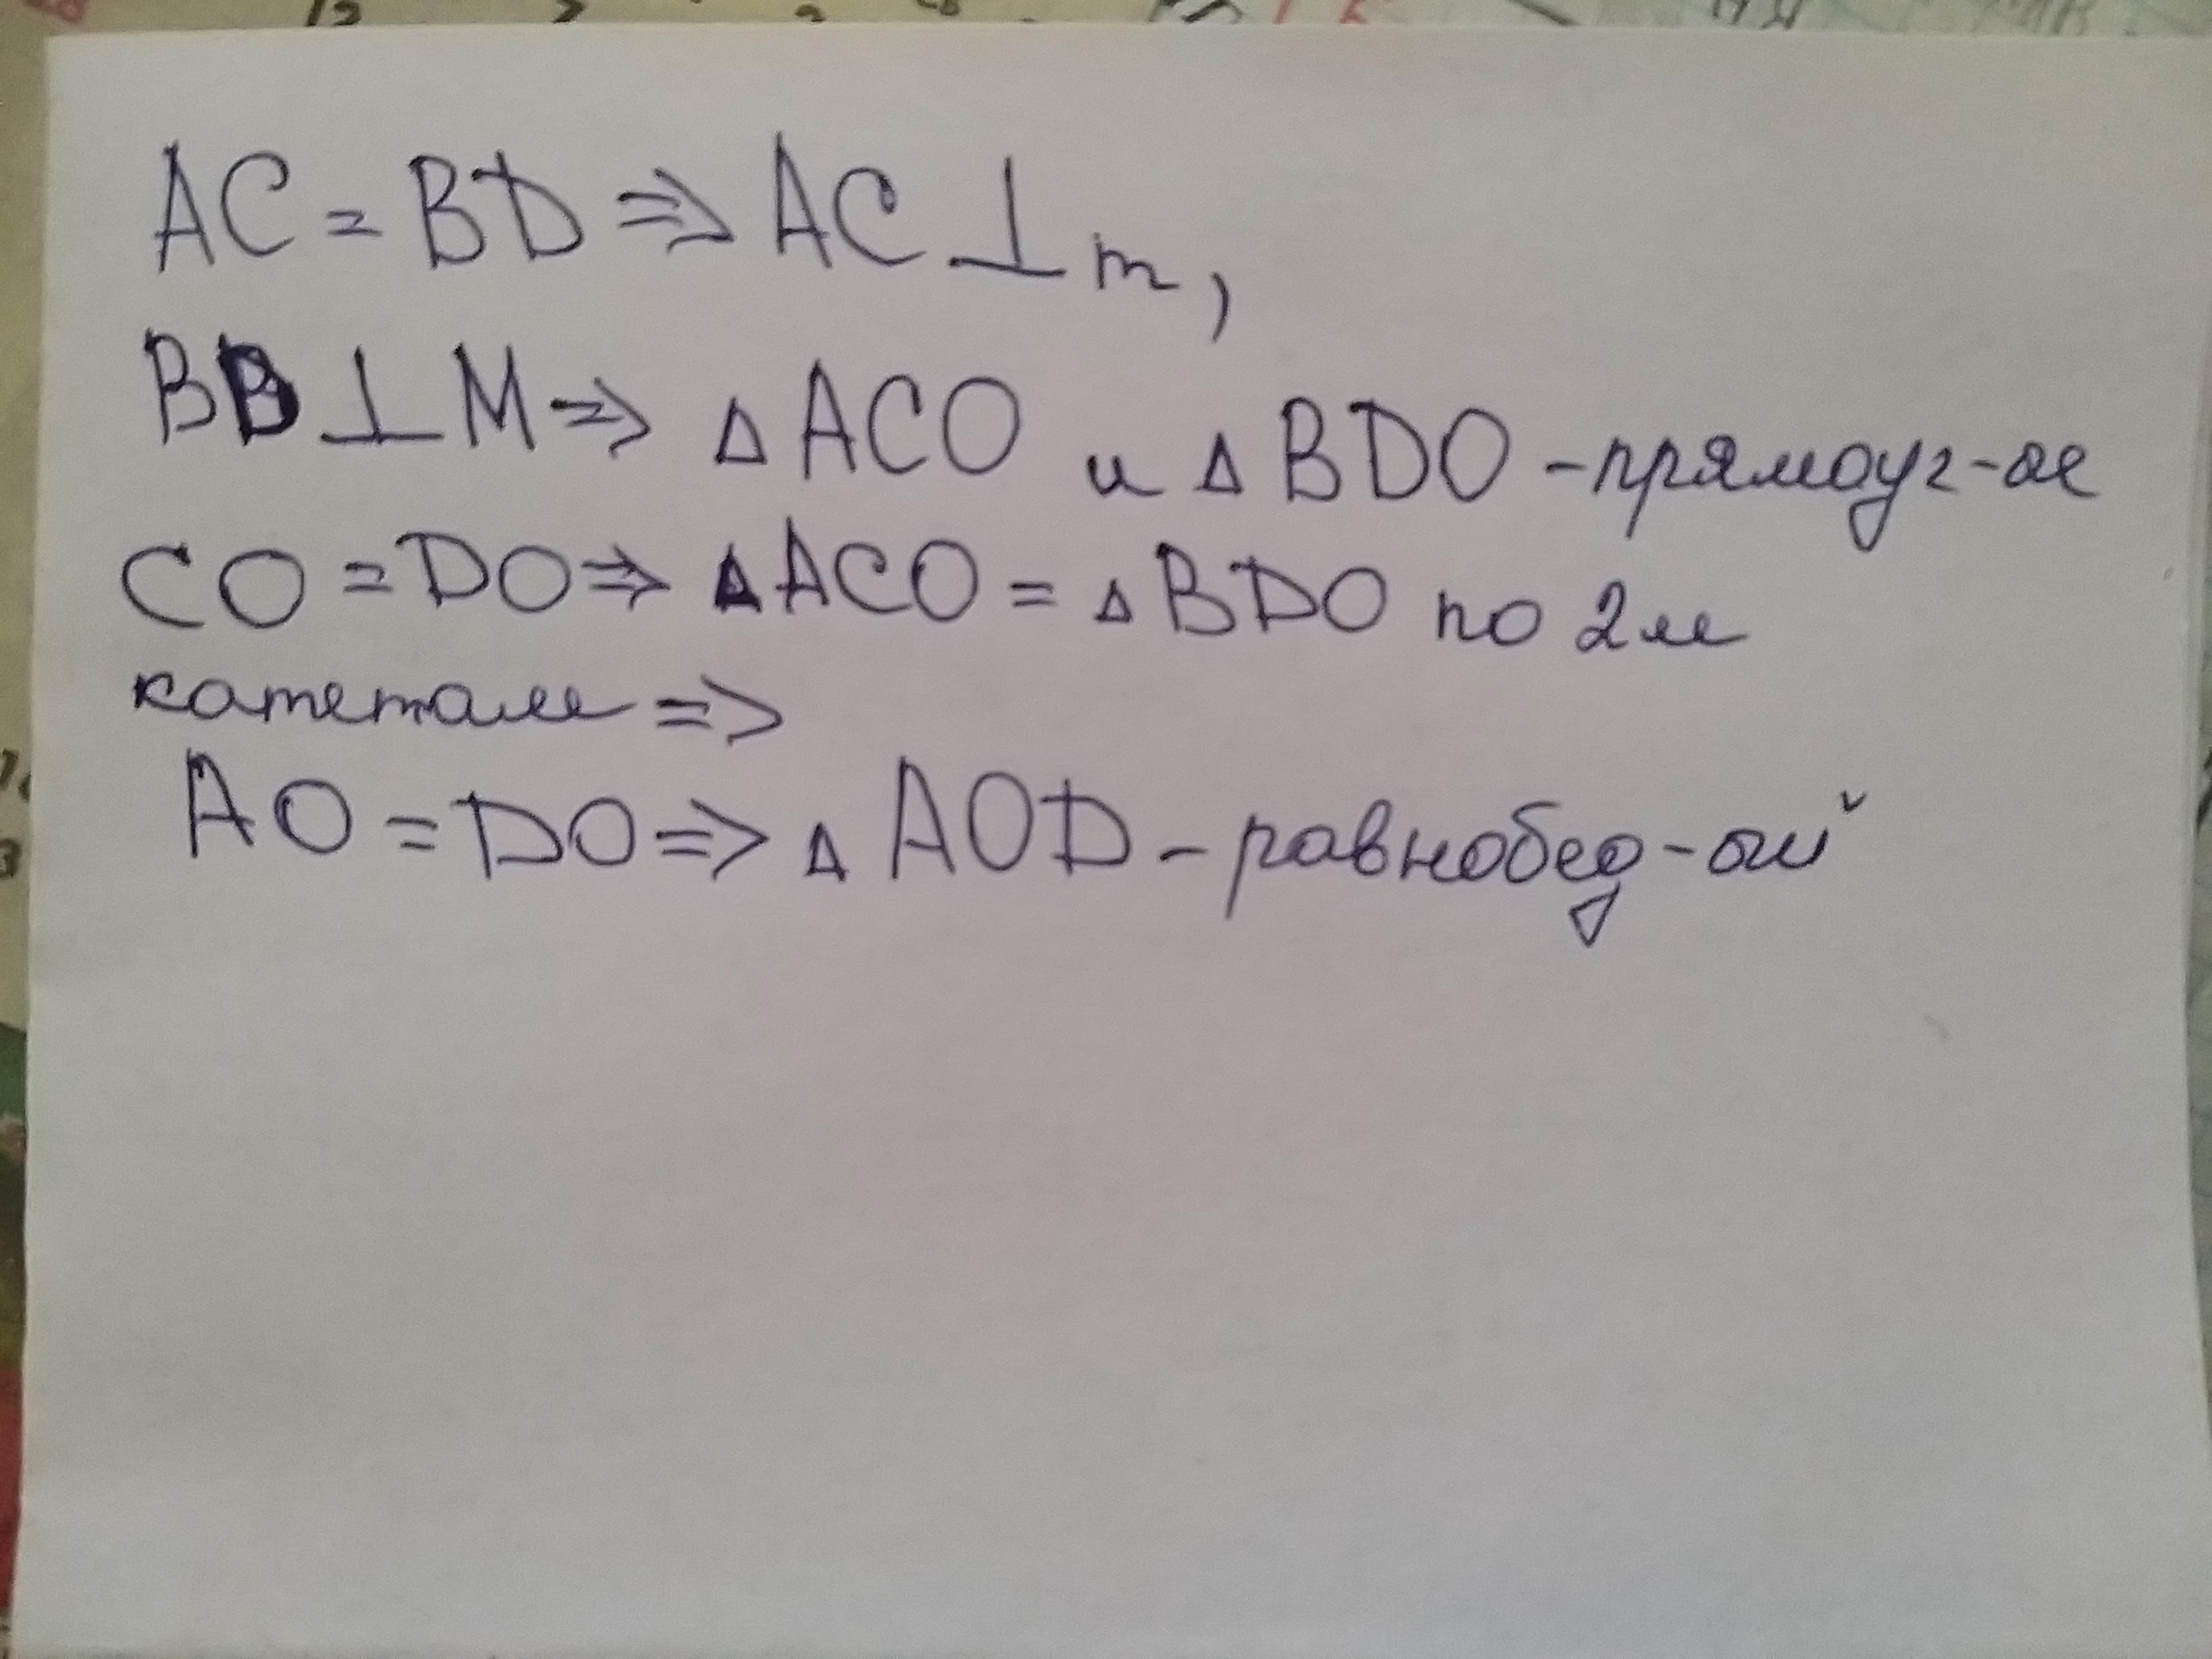 AC = BD => AC ⊥ m,
BD ⊥ M => △ ACO и △ BDO - прямоуг-ые
CO = DO => △ ACO = △ BDO по 2м
катетам =>
AO = DO => △ AOD - равнобед-ый